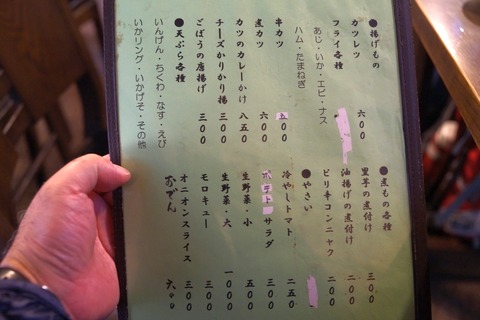 ●揚げもの
カツレツ 六〇〇
フライ各種
あじ・いか・エビ・ナス
ハム・たまねぎ
串カツ 五〇〇
煮カツ 六〇〇
カツのカレーかけ 八五〇
チーズかりかり揚 三〇〇
ごぼうの唐揚げ 三〇〇
●天ぷら各種
いんげん・ちくわ・なす・えび
いかリング・いかげそ・その他
●煮もの各種
里芋の煮付け 三〇〇
油揚げの煮付け 二〇〇
ピリ辛コンニャク 二〇〇
●やさい
冷やしトマト 二五〇
ポテトサラダ 三〇〇
生野菜・小 五〇〇
生野菜・大 一〇〇〇
モロキュー 三〇〇
オニオンスライス 三〇〇
おでん 六〇〇